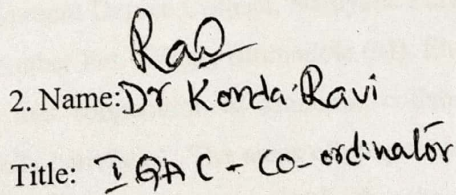 Rao
2. Name: Dr Konda Ravi
Title: IQAC - Co-ordinator